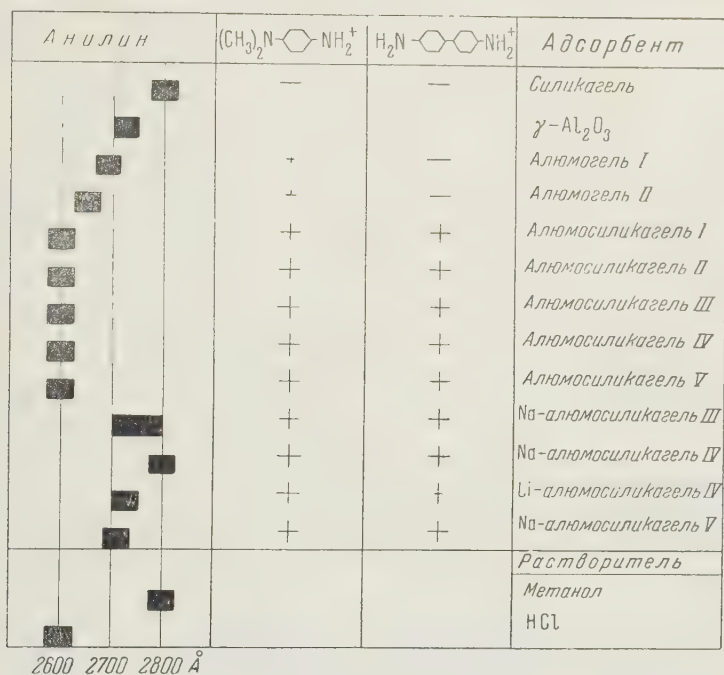 Анилин (CH₃)₂N-⌬-NH₂⁺ H₂N-⌬-⌬-NH₂⁺ Адсорбент
— — Силикагель
γ-Al₂O₃
+ — Алюмогель I
+ — Алюмогель II
+ + Алюмосиликагель I
+ + Алюмосиликагель II
+ + Алюмосиликагель III
+ + Алюмосиликагель IV
+ + Алюмосиликагель V
+ + Na-алюмосиликагель III
+ + Na-алюмосиликагель IV
+ + Li-алюмосиликагель IV
+ + Na-алюмосиликагель V
Растворитель
Метанол
HCl
2600 2700 2800 Å